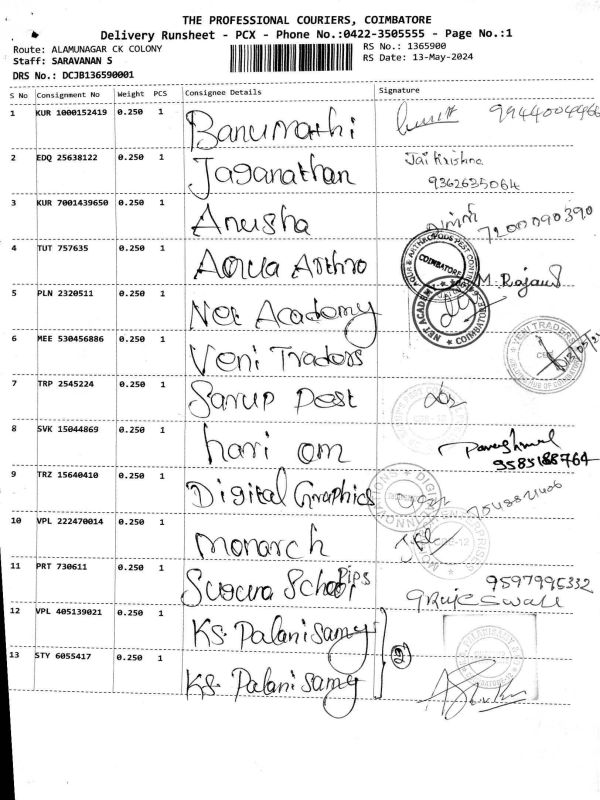 THE PROFESSIONAL COURIERS, COIMBATORE
Delivery Runsheet - PCX - Phone No.:0422-3505555 - Page No.:1
Route: ALAMUNAGAR CK COLONY
RS No.: 1365900
Staff: SARAVANAN S
RS Date: 13-May-2024
DRS No.: DCJB136590001
S No Consignment No Weight PCS Consignee Details Signature
1 KUR 1000152419 0.250 1 Banumathi
2 EDQ 25638122 0.250 1 Jaganathan Jai Krishna
9362635064
3 KUR 7001439650 0.250 1 Anusha 7200090390
4 TUT 757635 0.250 1 Aqua Arthro
COIMBATORE
5 PLN 2320511 0.250 1 Net Academy M. Rajan
NET ACADEMY COIMBATORE
6 MEE 530456886 0.250 1 Veni Traders
VENI TRADERS
7 TRP 2545224 0.250 1 Sarup Dost
8 SVK 15044869 0.250 1 hari om
9585188764
9 TRZ 15640410 0.250 1 Digital Graphics
10 VPL 222470014 0.250 1 monarch
11 PRT 730611 0.250 1 Suguna School Pips 9597995332
12 VPL 405139021 0.250 1 Ks. Palanisamy
13 STY 6055417 0.250 1 Ks. Palanisamy